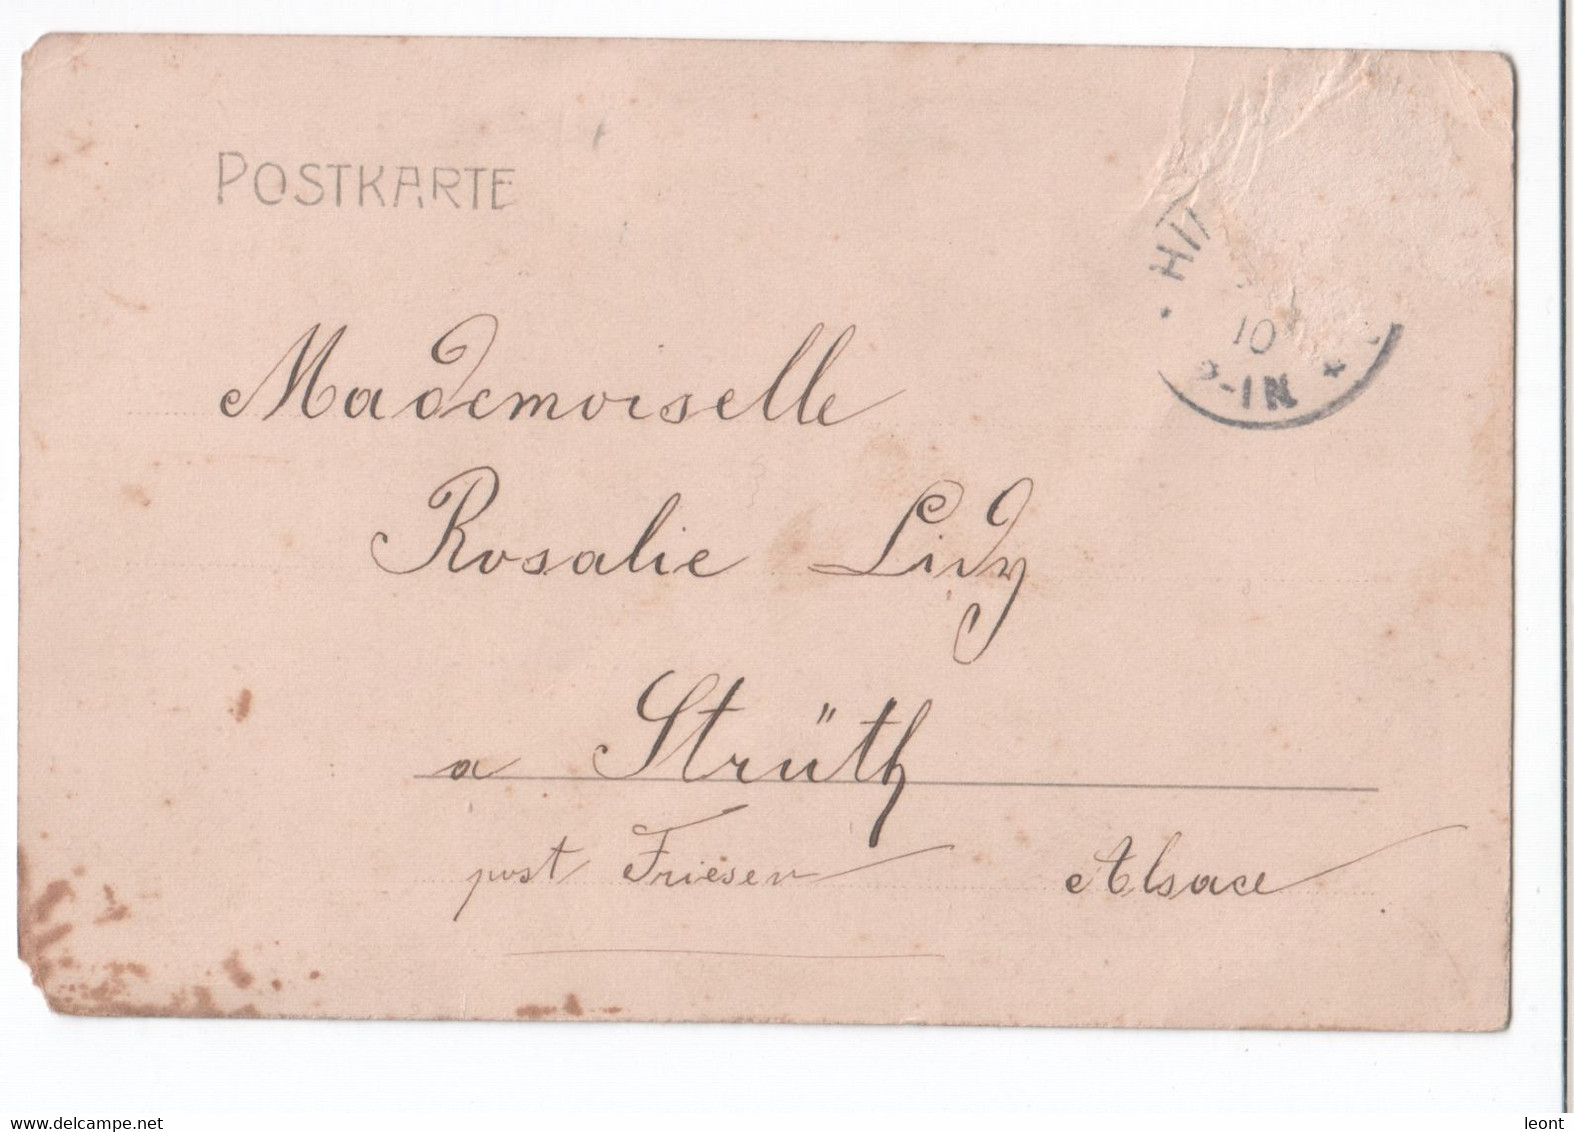 POSTKARTE
HI
10
-1N
Mademoiselle
Rosalie Lidy
a Strüth
post Friesen Alsace
www.delcampe.net
leont